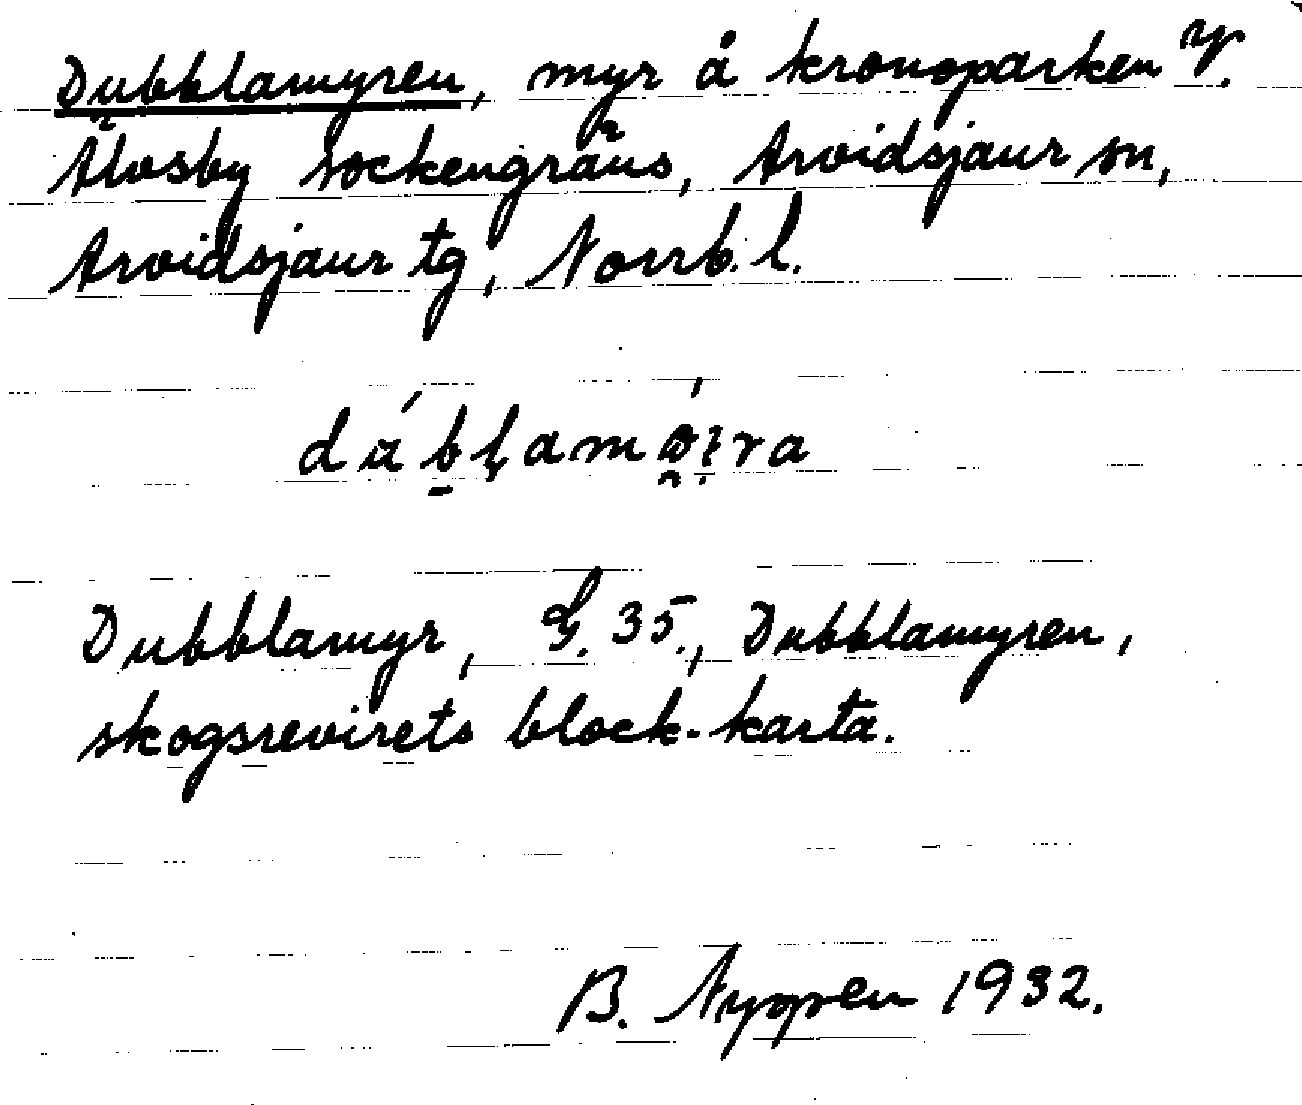 Dubblamyren, myr å kronoparken V.
Älvsby sockengräns, Arvidsjaur sn,
Arvidsjaur tg, Norrb. l.
Dubblamyr, G. 35., Dubblamyren,
skogsrevirets block-karta.
B. Nyppen 1932.